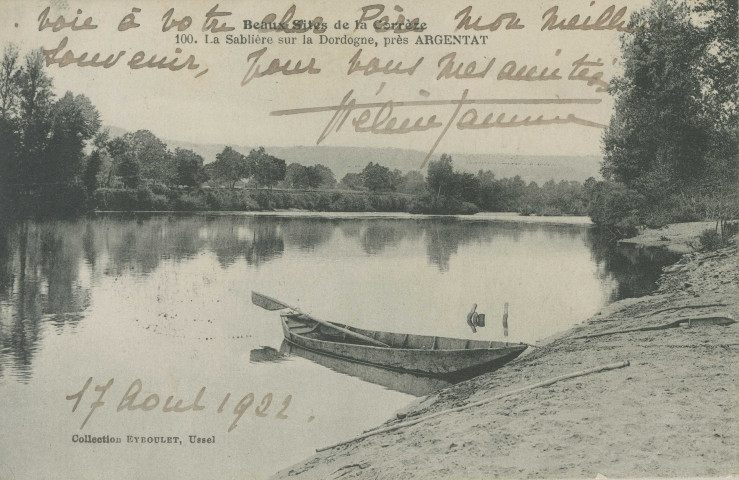 Beaux Sites de la Corrèze
100. La Sablière sur la Dordogne, près ARGENTAT
voie à votre cher Père mon meilleur
Souvenir, pour vous mes amitiés
Hélène
17 Aout 1922.
Collection EYBOULET, Ussel